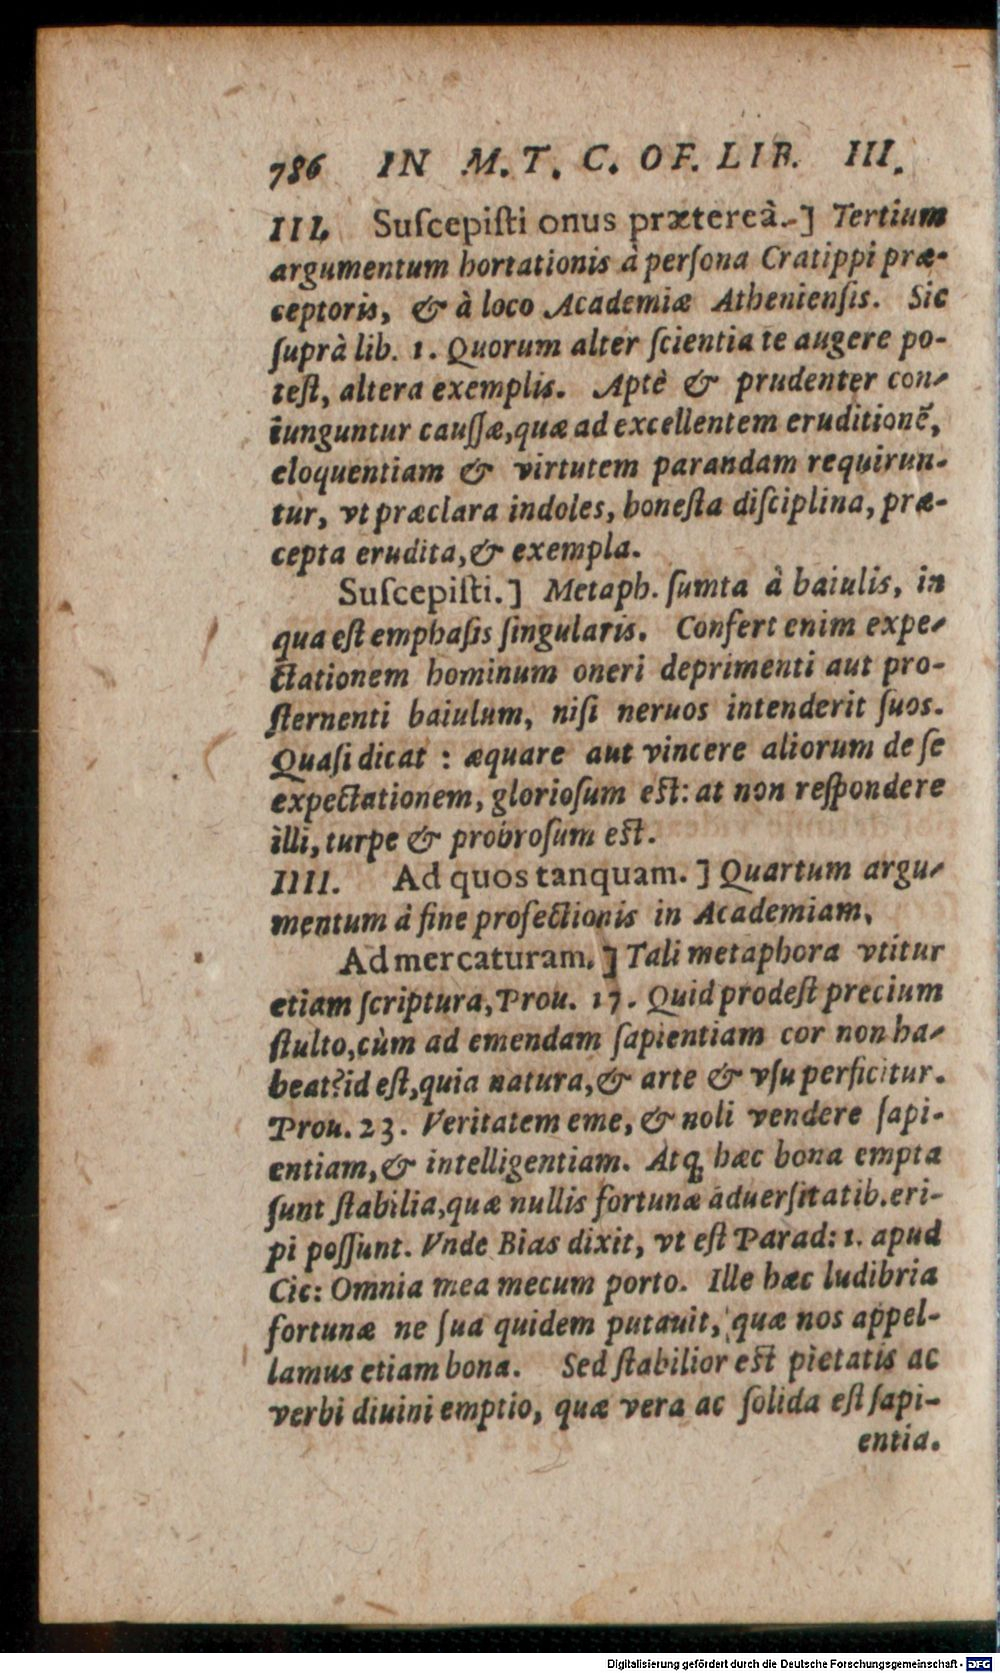 786 IN M. T. C. OF. LIB. III.
III. Suſcepiſti onus prætereà.] Tertium
argumentum hortationis à perſona Cratippi præ-
ceptoris, & à loco Academiæ Athenienſis. Sic
ſuprà lib. 1. Quorum alter ſcientia te augere po-
teſt, altera exemplis. Aptè & prudenter con-
iunguntur cauſſæ, quæ ad excellentem eruditionē,
eloquentiam & virtutem parandam requirun-
tur, vt præclara indoles, honeſta diſciplina, præ-
cepta erudita, & exempla.
Suſcepiſti.] Metaph. ſumta à baiulis, in
qua eſt emphaſis ſingularis. Confert enim expe-
ctationem hominum oneri deprimenti aut pro-
ſternenti baiulum, niſi neruos intenderit ſuos.
Quaſi dicat : æquare aut vincere aliorum de ſe
expectationem, glorioſum eſt: at non reſpondere
illi, turpe & probroſum eſt.
IIII. Ad quos tanquam.] Quartum argu-
mentum à fine profectionis in Academiam.
Ad mercaturam.] Tali metaphora vtitur
etiam ſcriptura, Prou. 17. Quid prodeſt precium
ſtulto, cùm ad emendam ſapientiam cor non ha-
beat? id eſt, quia natura, & arte & vſu perficitur.
Prou. 23. Veritatem eme, & noli vendere ſapi-
entiam, & intelligentiam. Atq; hæc bona empta
ſunt ſtabilia, quæ nullis fortunæ aduerſitatib. eri-
pi poſſunt. Vnde Bias dixit, vt eſt Parad: 1. apud
Cic: Omnia mea mecum porto. Ille hæc ludibria
fortunæ ne ſua quidem putauit, quæ nos appel-
lamus etiam bona. Sed ſtabilior eſt pietatis ac
verbi diuini emptio, quæ vera ac ſolida eſt ſapi-
entia.
Digitalisierung gefördert durch die Deutsche Forschungsgemeinschaft - DFG